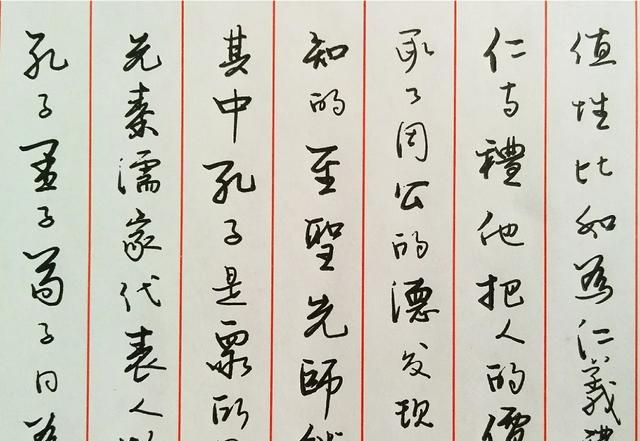 孔子孟子荀子同為
先秦儒家代表人
其中孔子是眾所
知的至聖先師
承了周公的德发现
仁与禮他把人的價
值性比如為仁義禮